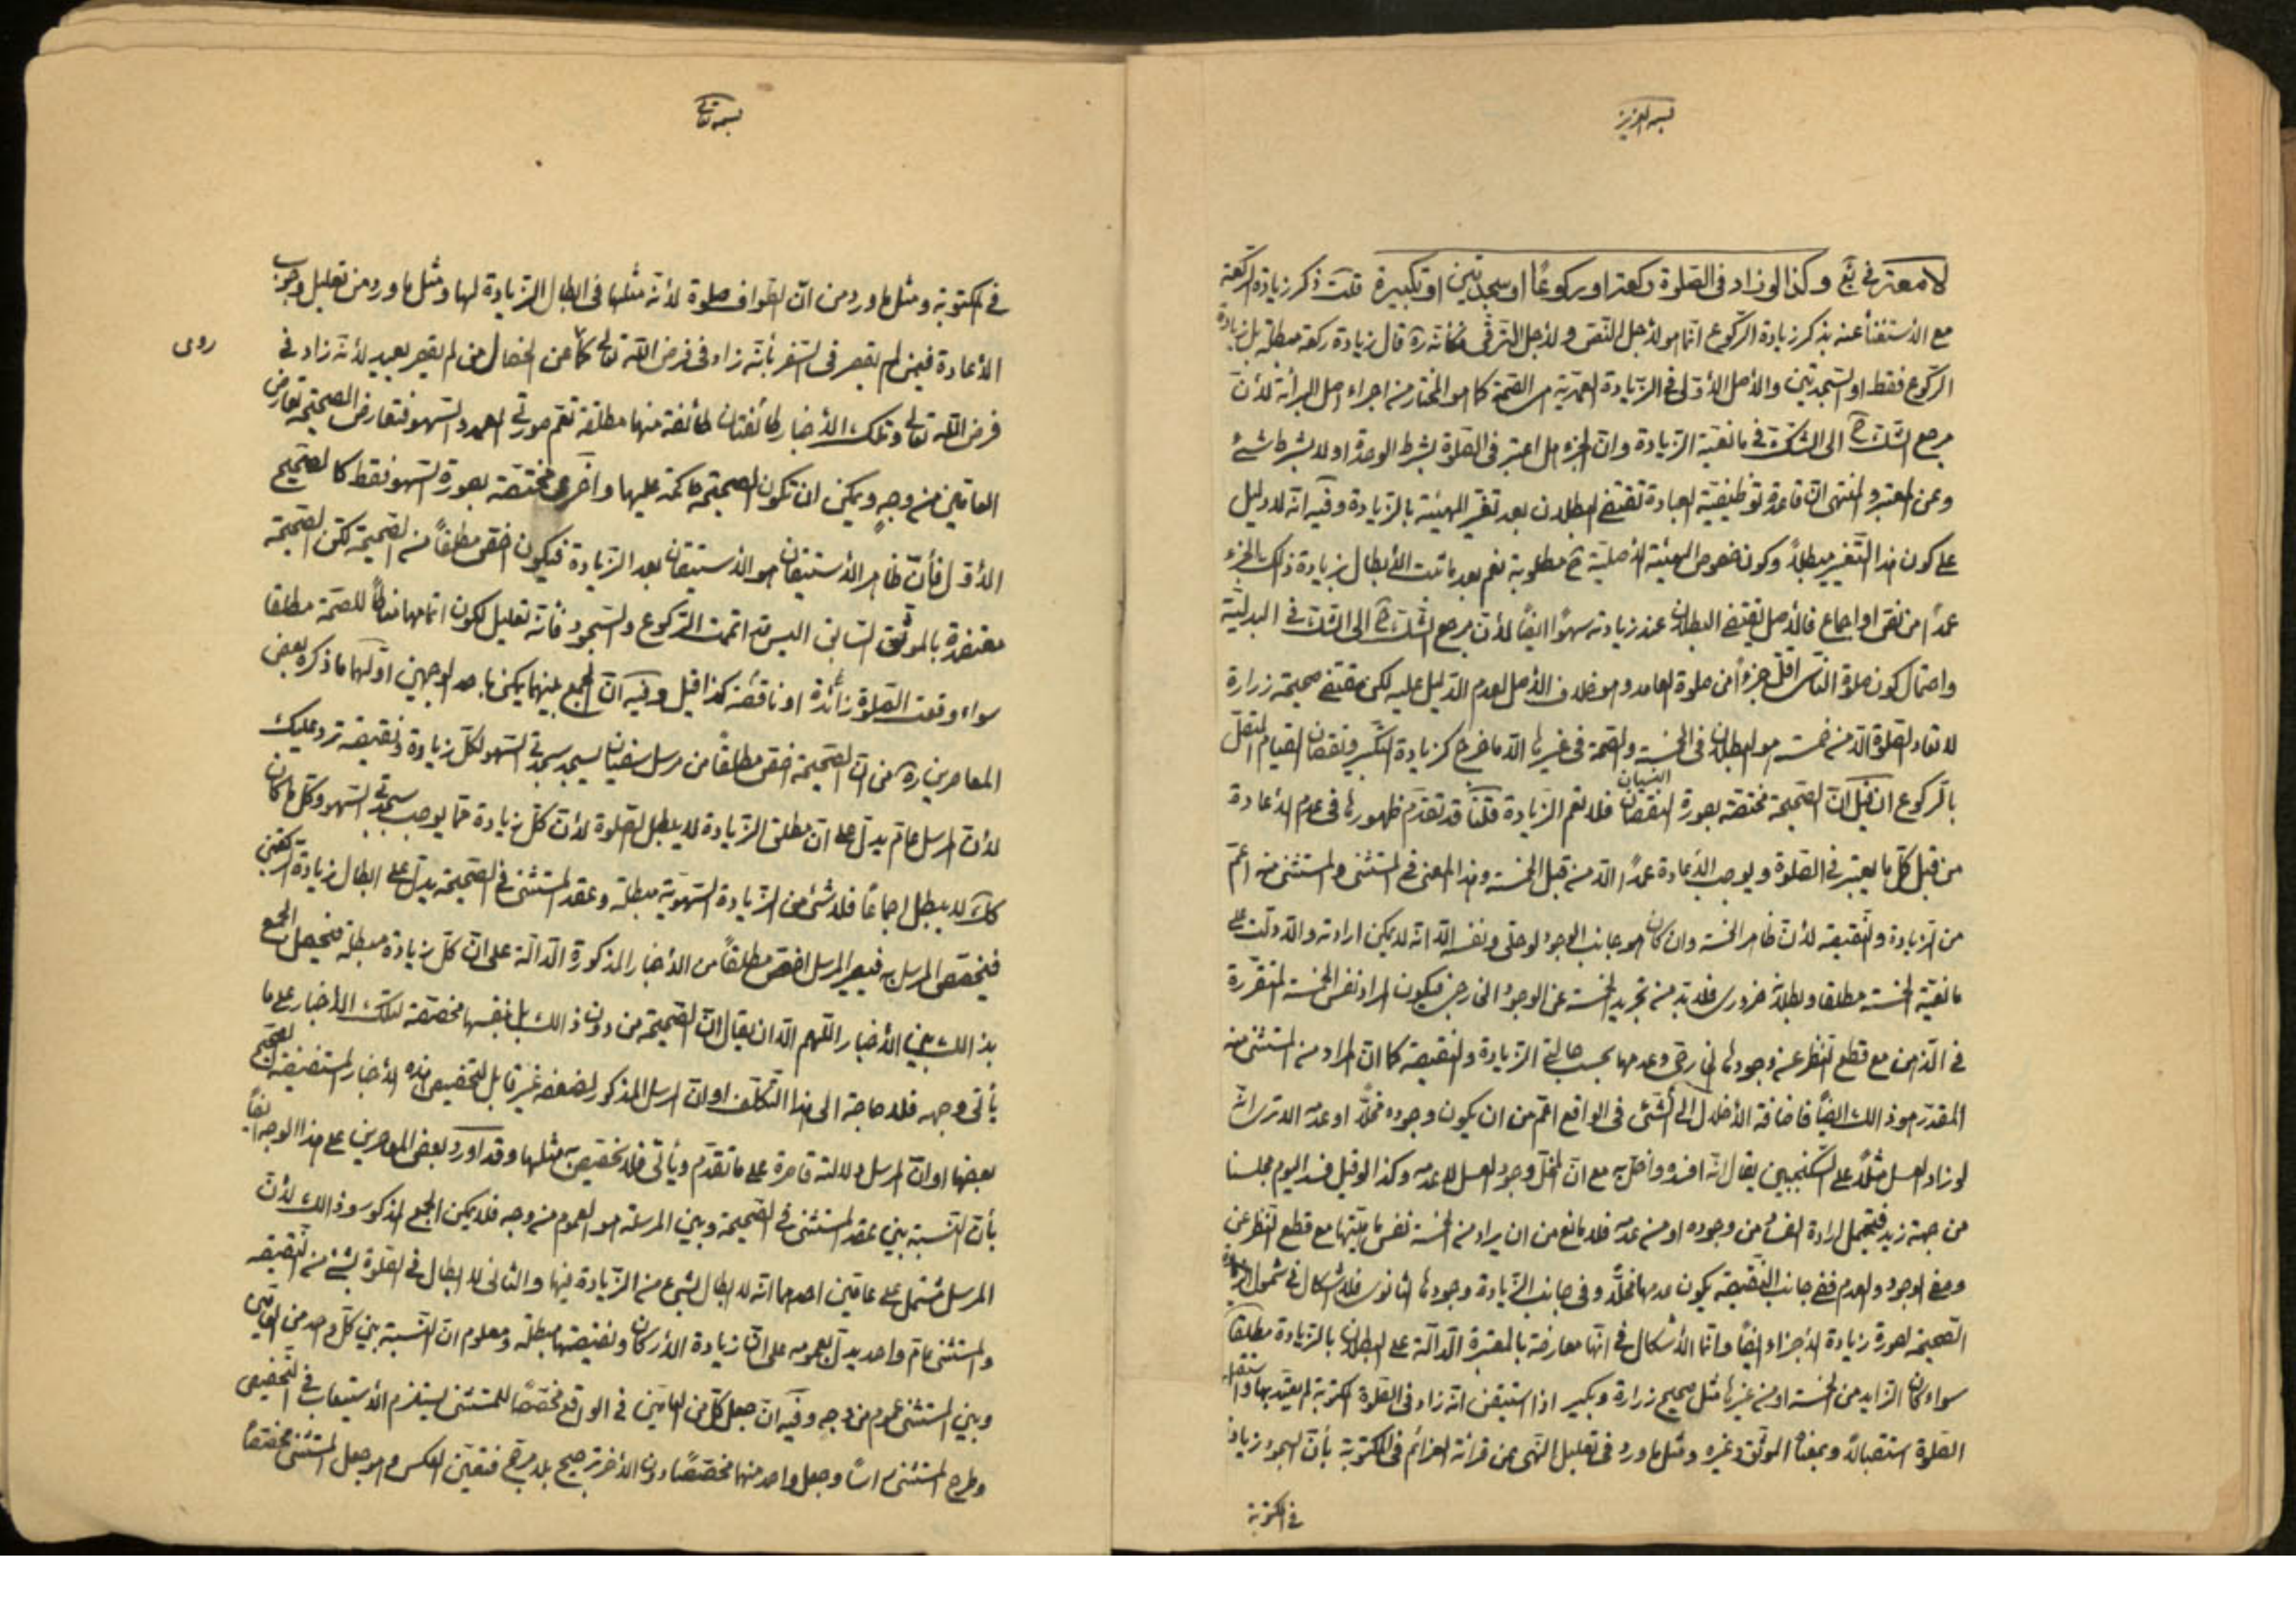 بسمه العزيز
لامعة في يع وكذا لو زاد في الصلوة ركعة او ركوعًا او سجدتين او تكبيرة قلت ذكر زيادة الركعة
مع الاستغناء عنه بذكر زيادة الركوع انما هو لاجل النص ولاجل الترقى فكأنه ره قال زيادة ركعة مبطلة بل زيادة
الركوع فقط او السجدتين والاصل الاولى في الزيادة العمدية هى الصحة كما هو المختار من اجراء اصل البرائة لان
مرجع الشك ح الى الشك في مانعية الزيادة وان الجزء هل اعتبر في الصلوة بشرط الوحدة او لا بشرط شئ
وعن المعتبر والمنتهى ان قاعدة توظيفية العبادة تقتضى البطلان بعد تغير الهيئة بالزيادة وفيه انه لا دليل
على كون هذا التغيير مبطلًا وكون خصوص الهيئة الاصلية ح مطلوبة نعم بعد ما ثبت الابطال بزيادة ذلك الجزء
عمدًا من نص او اجماع فالاصل يقتضى البطلان عند زيادته سهوًا ايضًا لان مرجع الشك ح الى الشك في البدلية
واحتمال كون صلوة الناسى اقل جزءًا من صلوة العامد وهو خلاف الاصل لعدم الدليل عليه لكن مقتضى صحيحة زرارة
لا تعاد الصلوة الا من خمسة هو البطلان في الخمسة والصحة في غيرها الا ما خرج كزيادة التكبير ونقصان القيام المتصل
بالركوع ان قيل ان الصحيحة مختصة بصورة النقصان النسيان فلا تعم الزيادة قلنا قد تقدم ظهورها في عدم الاعادة
من قبل كل ما يعتبر في الصلوة ويوجب الاعادة عمدًا الا من قبل الخمسة وهذا المعنى في المستثنى والمستثنى منه اعم
من الزيادة والنقيصة لان ظاهر الخمسة وان كان هو جانب الوجود لو خلى ونفسه الا انه لا يمكن ارادته والا دلت على
مانعية الخمسة مطلقا وبطلانه ضرورى فلا بد من تجريد الخمسة عن الوجود الخارجى فيكون المراد نفس الخمسة المتقررة
في الذهن مع قطع النظر عن وجودها الخارجى وعدمها بحسب حالتى الزيادة والنقيصة كما ان المراد من المستثنى منه
المقدر هو ذالك ايضًا فاضافة الاخلال الى الشئ في الواقع اعم من ان يكون وجوده مخلًا او عدمه الا ترى انه
لو زاد العسل مثلًا على السكنجبين يقال انه افسده واخل به مع ان المخل وجود العسل لا عدمه وكذا لو قيل فسد اليوم مجلسنا
من جهة زيد فيحتمل ارادة الفساد من وجوده او من عدمه فلا مانع من ان يراد من الخمسة نفس ماهيتها مع قطع النظر عن
وصفى الوجود والعدم ففى جانب النقيصة يكون عدمها مخلًا وفى جانب الزيادة وجودها الثانوى فلا اشكال في شمول
الصحيحة لصورة زيادة الاجزاء ايضًا وانما الاشكال في انها معارضة بالمعتبرة الدالة على البطلان بالزيادة مطلقًا
سواء كان الزايد من الخمسة او من غيرها مثل صحيح زرارة وبكير اذا استيقن انه زاد في الصلوة المكتوبة لم يعتد بها واستقبل
الصلوة استقبالًا وبمعناه الموثق وغيره ومثل ما ورد في تعليل النهى عن قرائة العزائم في المكتوبة بأن السجود زيادة
في المكتوبة
بسمه تعالى
في المكتوبة ومثل ما ورد من ان الطواف صلوة لانه مثلها في ابطال الزيادة لها ومثل ما ورد من تعليل وجوب
الاعادة فيمن لم يقصر في السفر بأنه زاد في فرض الله تعالى كما عن الخصال من لم يقصر يعيد لانه زاد في
روى
فرض الله تعالى وتلك الاخبار طائفتان طائفة منها مطلقة تعم صورتى العمد والسهو فتعارض الصحيحة تعارض
العامين من وجه ويمكن ان تكون الصحيحة حاكمة عليها واخرى مختصة بصورة السهو فقط كالصحيح
الاول فأن ظاهر الاستيقان هو الاستيقان بعد الزيادة فيكون اخص مطلقًا من الصحيحة لكن الصحيحة
معتضدة بالموثق السابق اليس قد اتممت الركوع والسجود فأنه تعليل لكون اتمامهما مناطًا للصحة مطلقا
سواء وقعت الصلوة زائدة او ناقصة كذا قيل وفيه ان الجمع بينهما يمكن باحد الوجهين اولهما ما ذكره بعض
المعاصرين ره من ان الصحيحة اخص مطلقًا من مرسل سفيان يسجد سجدتى السهو لكل زيادة ونقيصة ترد عليك
لان المرسل عام يدل على ان مطلق الزيادة لا يبطل الصلوة لان كل زيادة مما يوجب سجدتى السهو وكل ما كان
كك لا يبطل اجماعًا فلا شئ من الزيادة السهوية مبطلة وعقد المستثنى في الصحيحة يدل على ابطال زيادة الركعتين
فيخصص المرسل به فيصير المرسل اخص مطلقًا من الاخبار المذكورة الدالة على ان كل زيادة مبطلة فيحصل الجمع
بذالك بين الاخبار اللهم الا ان يقال ان الصحيحة من دون ذالك بل بنفسها مخصصة لتلك الاخبار على ما
يأتى وجهه فلا حاجة الى هذا التكلف او ان المرسل المذكور لضعفه غير قابل لتخصيص هذه الاخبار المستفيضة الصحيح
بعضها او ان المرسل دلالته قاصرة على ما تقدم ويأتى فلا تخصيص به مثلها وقد اورد بعض المعاصرين على هذا الوجه ايضًا
بأن النسبة بين عقد المستثنى في الصحيحة وبين المرسلة هو العموم من وجه فلا يمكن الجمع المذكور وذالك لان
المرسل مشتمل على عامين احدهما انه لا ابطال لشئ من الزيادة فيها والثانى لا ابطال في الصلوة لشئ من النقيصة
والمستثنى عام واحد يدل بعمومه على ان زيادة الاركان ونقيصتها مبطلة ومعلوم ان النسبة بين كل واحد من العامين
وبين المستثنى عموم من وجه وفيه ان جعل كل من العامين في الواقع مخصصًا للمستثنى يستلزم الاستيعاب في التخصيص
وطرح المستثنى رأسًا وجعل واحد منهما مخصصًا دون الاخر ترجيح بلا مرجح فتعين العكس وهو جعل المستثنى مخصصًا